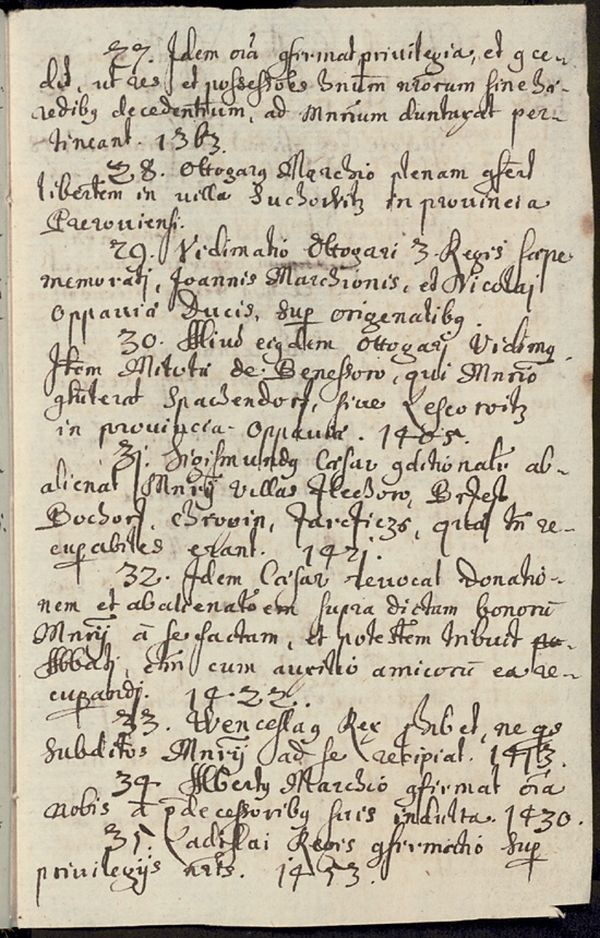 27. Idem oīa gfirmat privilegia, et gce-
dit, ut res et possessōes hnūm nrōrum sine hæ-
redibg decedentium, ad Mnrium duntaxat per-
tineant. 1363.
28. Ottogarg Marchio plenam gfert
libertēm in villa Suchowitz in provincia
Preroviensi.
29. Vidimatio Ottogari 3. Regis sæpe
memorati, Joannis Marchionis, et Nicolaj
Oppaviæ Ducis, sup originalibg.
30. Aliud eigdem Ottogarj Vidimg.
Itēm de Benessow, qui Mnriō
Spachendorf, sive Lescowitz
in provincia Oppaviæ. 1405.
31. Sigismundg Cæsar gditionalr ab-
alienat Mnrij villas
Bochorz, Chropin, quæ tn̄ re-
cupabiles erant. 1421.
32. Idem Cæsar revocat Donatio-
nem et abalienatōem supra dictam bonorū
Mnrij ā se factam, et potestēm tribuit
Abbatj, etm̄ cum auxilio amicorū ea re-
cupandj. 1422.
33. Wenceslag Rex phibet, ne qs
subditos Mnrij ad se recipiat. 1413.
34. Albertg Marchio gfirmat oīa
nobis ā pdecessoribg suis indulta. 1430.
35. Ladislai Regis gfirmatio sup
privilegijs nrīs. 1453.